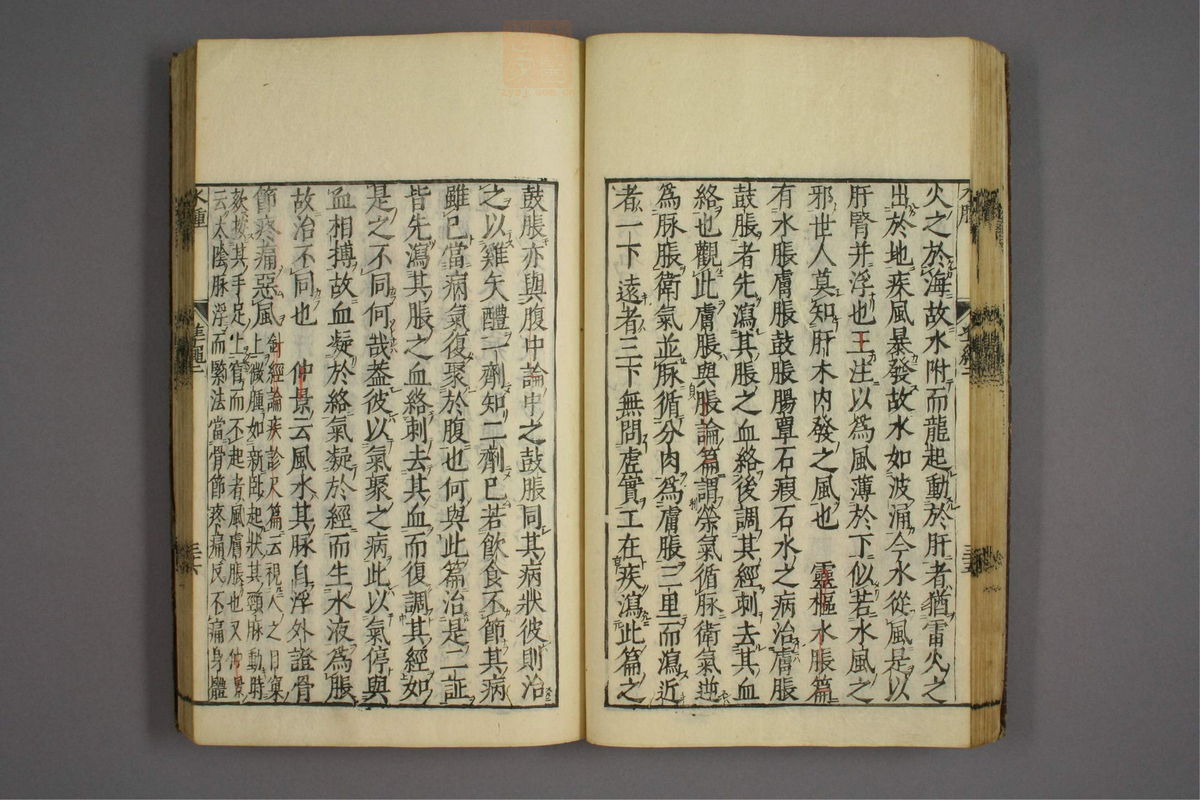 火之於海故水附而龍起動於肝者猶雷火之
出於地疾風暴發故水如波涌今水從風是以
肝腎并浮也王注以為風薄於下似若水風之
邪世人莫知肝木内發之風也 靈樞水脹篇
有水脹膚脹鼓脹腸覃石瘕石水之病治膚脹
鼓脹者先瀉其脹之血絡後調其經刺去其血
絡也觀此膚脹與脹論篇謂榮氣循脉衛氣逆
為脉脹衛氣並脉循分肉為膚脹三里而瀉近
者一下遠者三下無問虛實工在疾瀉此篇之
鼓脹亦與腹中論中之鼓脹同其病狀彼則治
之以雞矢醴一劑知二劑已若飲食不節其病
雖已當病氣復聚於腹也何與此篇治是二証
皆先瀉其脹之血絡刺去其血而復調其經如
是之不同何哉葢彼以氣聚之病此以氣停與
血相搏故血凝於絡氣凝於經而生水液為脹
故治不同也 仲景云風水其脉自浮外證骨
節疼痛惡風 針經論疾診尺篇云視人之目窠
上微腫如新臥起狀其頸脉動時
欬按其手足上窅而不起者風膚脹也又仲景
云太陰脉浮而緊法當骨節疼痛反不痛身體
水腫
準繩
三六